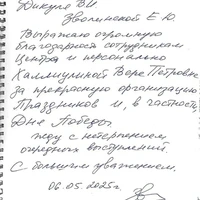 Дикуле В И
Зволинской Е. Ю.
Выражаю огромную
благодарность сотрудникам
Центра и персонально
Каллиулиной Вере Петровне
за прекрасную организацию
Праздников и, в частности,
Дне Победы
Жду с нетерпением
очередных выступлений.
С большим уважением.
06.05.2025г.